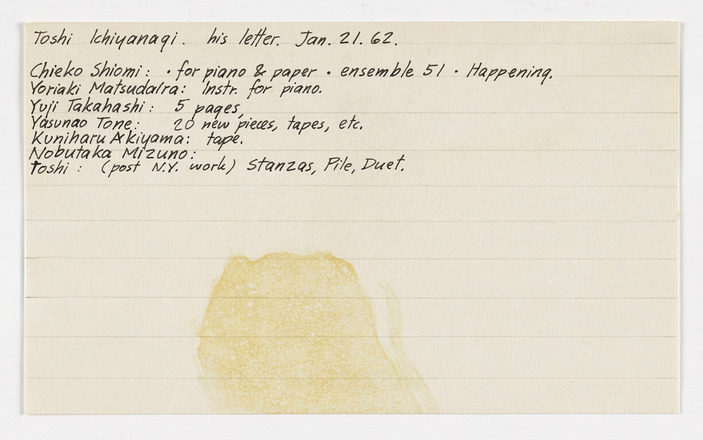 Toshi Ichiyanagi. his letter. Jan. 21. 62.
Chieko Shiomi: · for piano & paper · ensemble 51 · Happening.
Yoriaki Matsudaira: Instr. for piano.
Yuji Takahashi: 5 pages,
Yasunao Tone: 20 new pieces, tapes, etc.
Kuniharu Akiyama: tape.
Nobutaka Mizuno:
Toshi: (post N.Y. work) Stanzas, Pile, Duet.